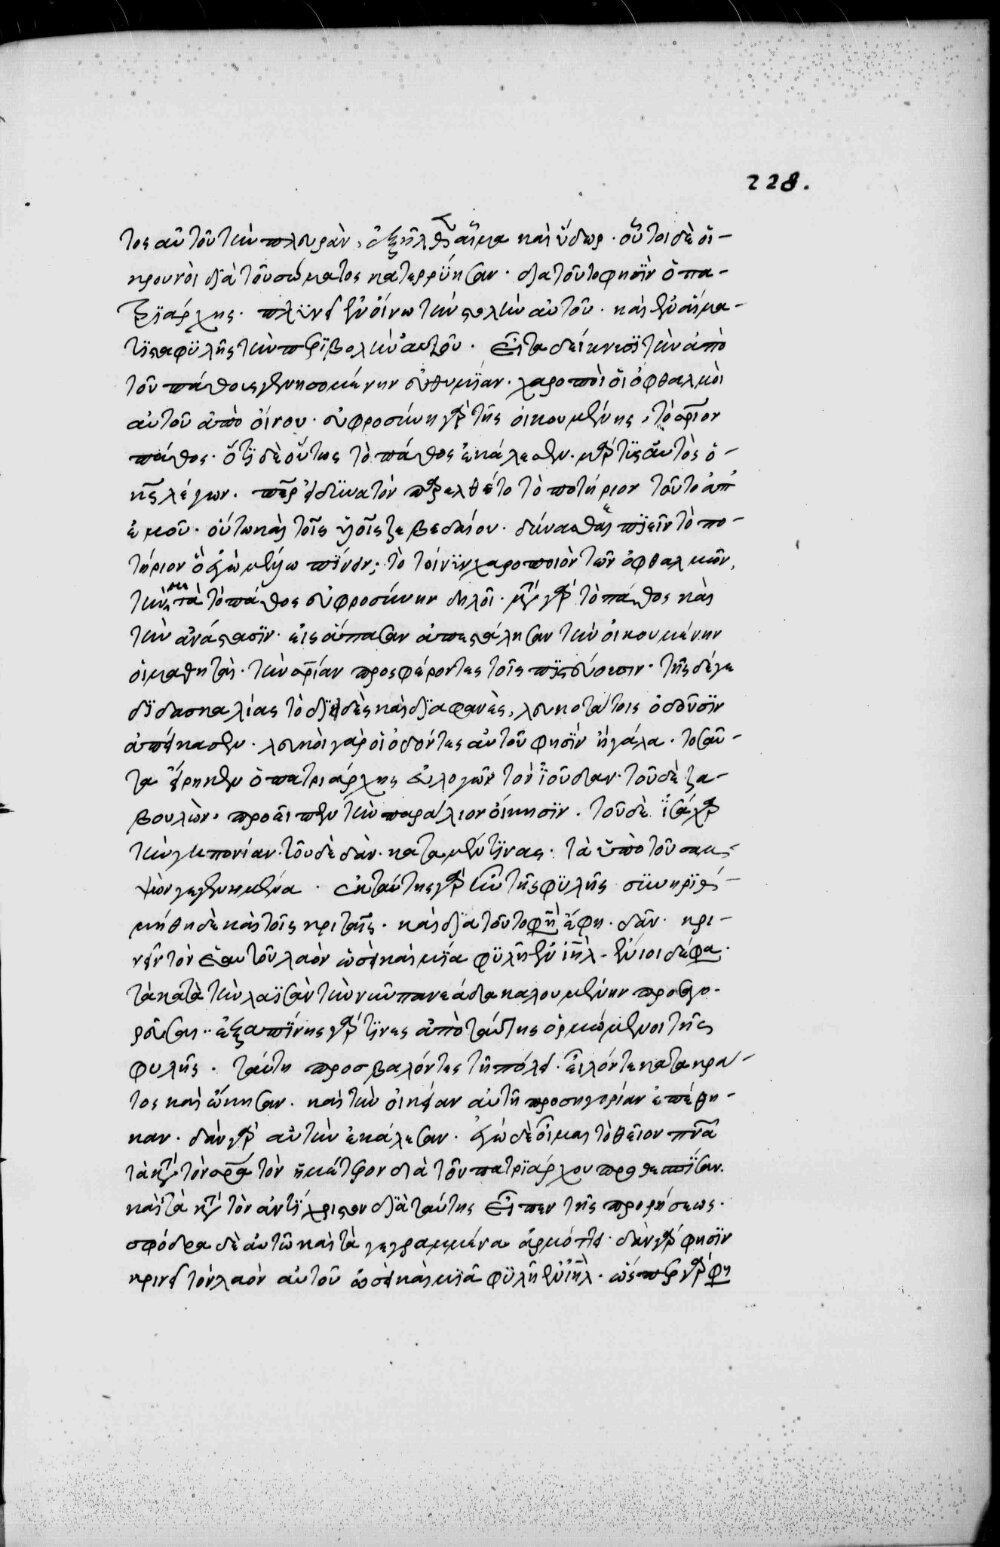 228.
τος αὐτοῦ τὴν πλευρὰν, ἐξῆλθεν αἷμα καὶ ὕδωρ. οὗτοι δὲ οἱ
κρουνοὶ διὰ τοῦ σώματος κατερρύησαν. δια τοῦτο φησὶν ὁ πα-
τριάρχης. πλυνεῖ ἐν οἴνω τὴν στολὴν αὐτοῦ. καὶ ἐν αἵμα-
τι σταφυλῆς τὴν περιβολὴν αὐτοῦ. Εἶτα δείκνυσι τὴν ἀπὸ
τοῦ πάθους γενησομένην εὐθυμίαν. χαροποὶ οἱ ὀφθαλμοὶ
αὐτοῦ ἀπὸ οἴνου. εὐφροσύνη γὰρ τῆς οἰκουμένης, τὸ σριον
πάθος. ὅτι δὲ οὕτως τὸ πάθος ἐκάλεσεν. μαρτυς αὐτὸς ὁ
κς λέγων. περ εἰ δυνατὸν παρελθέτο τὸ ποτήριον τοῦτο ἀπ
ἐμοῦ. οὕτω καὶ τοῖς υἱοῖς ζεβεδαίου. δύνασθαι πιεῖν τὸ πο-
τήριον ὃ ἐγὼ μέλλω πίνειν; τὸ τοίνυν χαροποιὸν τῶν ὀφθαλμῶν,
τὴν μετὰ τὸ πάθος εὐφροσύνην δηλοῖ. μετὰ γὰρ τὸ πάθος καὶ
τὴν ἀνάστασιν. εἰς ἅπασαν ἀπεστάλησαν τὴν οἰκουμένην
οἱ μαθηταὶ. τὴν σριαν προσφέροντες τοῖς πιστεύουσιν. τῆς δέγε
διδασκαλίας τὸ διειδὲς καὶ διαφανὲς, λευκοτάτοις ὀδοῦσιν
ἀπείκασεν. λευκοὶ γὰρ οἱ ὀδόντες αὐτοῦ φησὶν ἢ γάλα. τοσαῦ-
τα εἴρηκεν ὁ πατριάρχης εὐλογῶν τὸν ἰούδαν. τοῦ δὲ ζα-
βουλὼν. προεῖπεν τὴν παράλιον οἴκησιν. τοῦ δὲ ἰσάχαρ
τὴν γηπονίαν. τοῦ δὲ δὰν. κατα μέν τινας. τὰ ὑπὸ τοῦ σαμ-
ψὼν γεγενημένα. ἐκ ταύτης γὰρ ἦν τῆς φυλῆς. συνηρι-
θμήθη δὲ καὶ τοῖς κριταῖς. καὶ δια τοῦτο φη ἔφη. δὰν. κρι-
νεῖ τὸν ἑαυτοῦ λαὸν ὡσεὶ καὶ μία φυλὴ ἐν ιηλ. ἔνιοι δέ φα.
τὰ κατὰ τὴν λαϊσὰν τὴν νῦν πανεάδα καλουμένην προαγο-
ρεῦσαι. ἐξαπίνης γὰρ τινες ἀπὸ ταύτης ὁρμώμενοι τῆς
φυλῆς. ταύτη προσβαλόντες τῆ πόλει. εἷλόν τε κατα κρά-
τος καὶ ὤκησαν. καὶ τὴν οἰκείαν αὐτῆ προσηγορίαν ἐπέθη-
καν. δὰν γὰρ αὐτὴν ἐκάλεσαν. ἐγὼ δὲ οἶμαι τὸ θεῖον πνα
τὰ κατὰ τὸν σρα τὸν ἡμέτερον διὰ τοῦ πατριάρχου προθεσπίσαν.
καὶ τὰ κατὰ τὸν ἀντίχριστον διὰ ταύτης εἶπεν τῆς προρρήσεως.
σφόδρα δὲ αὐτῶ καὶ τὰ γεγραμμένα ἁρμόττει. δὰν γὰρ φησὶν
κρινεῖ τὸν λαὸν αὐτοῦ ὡσεὶ καὶ μία φυλὴ ἐν ιηλ. ὥσπερ γὰρ φη